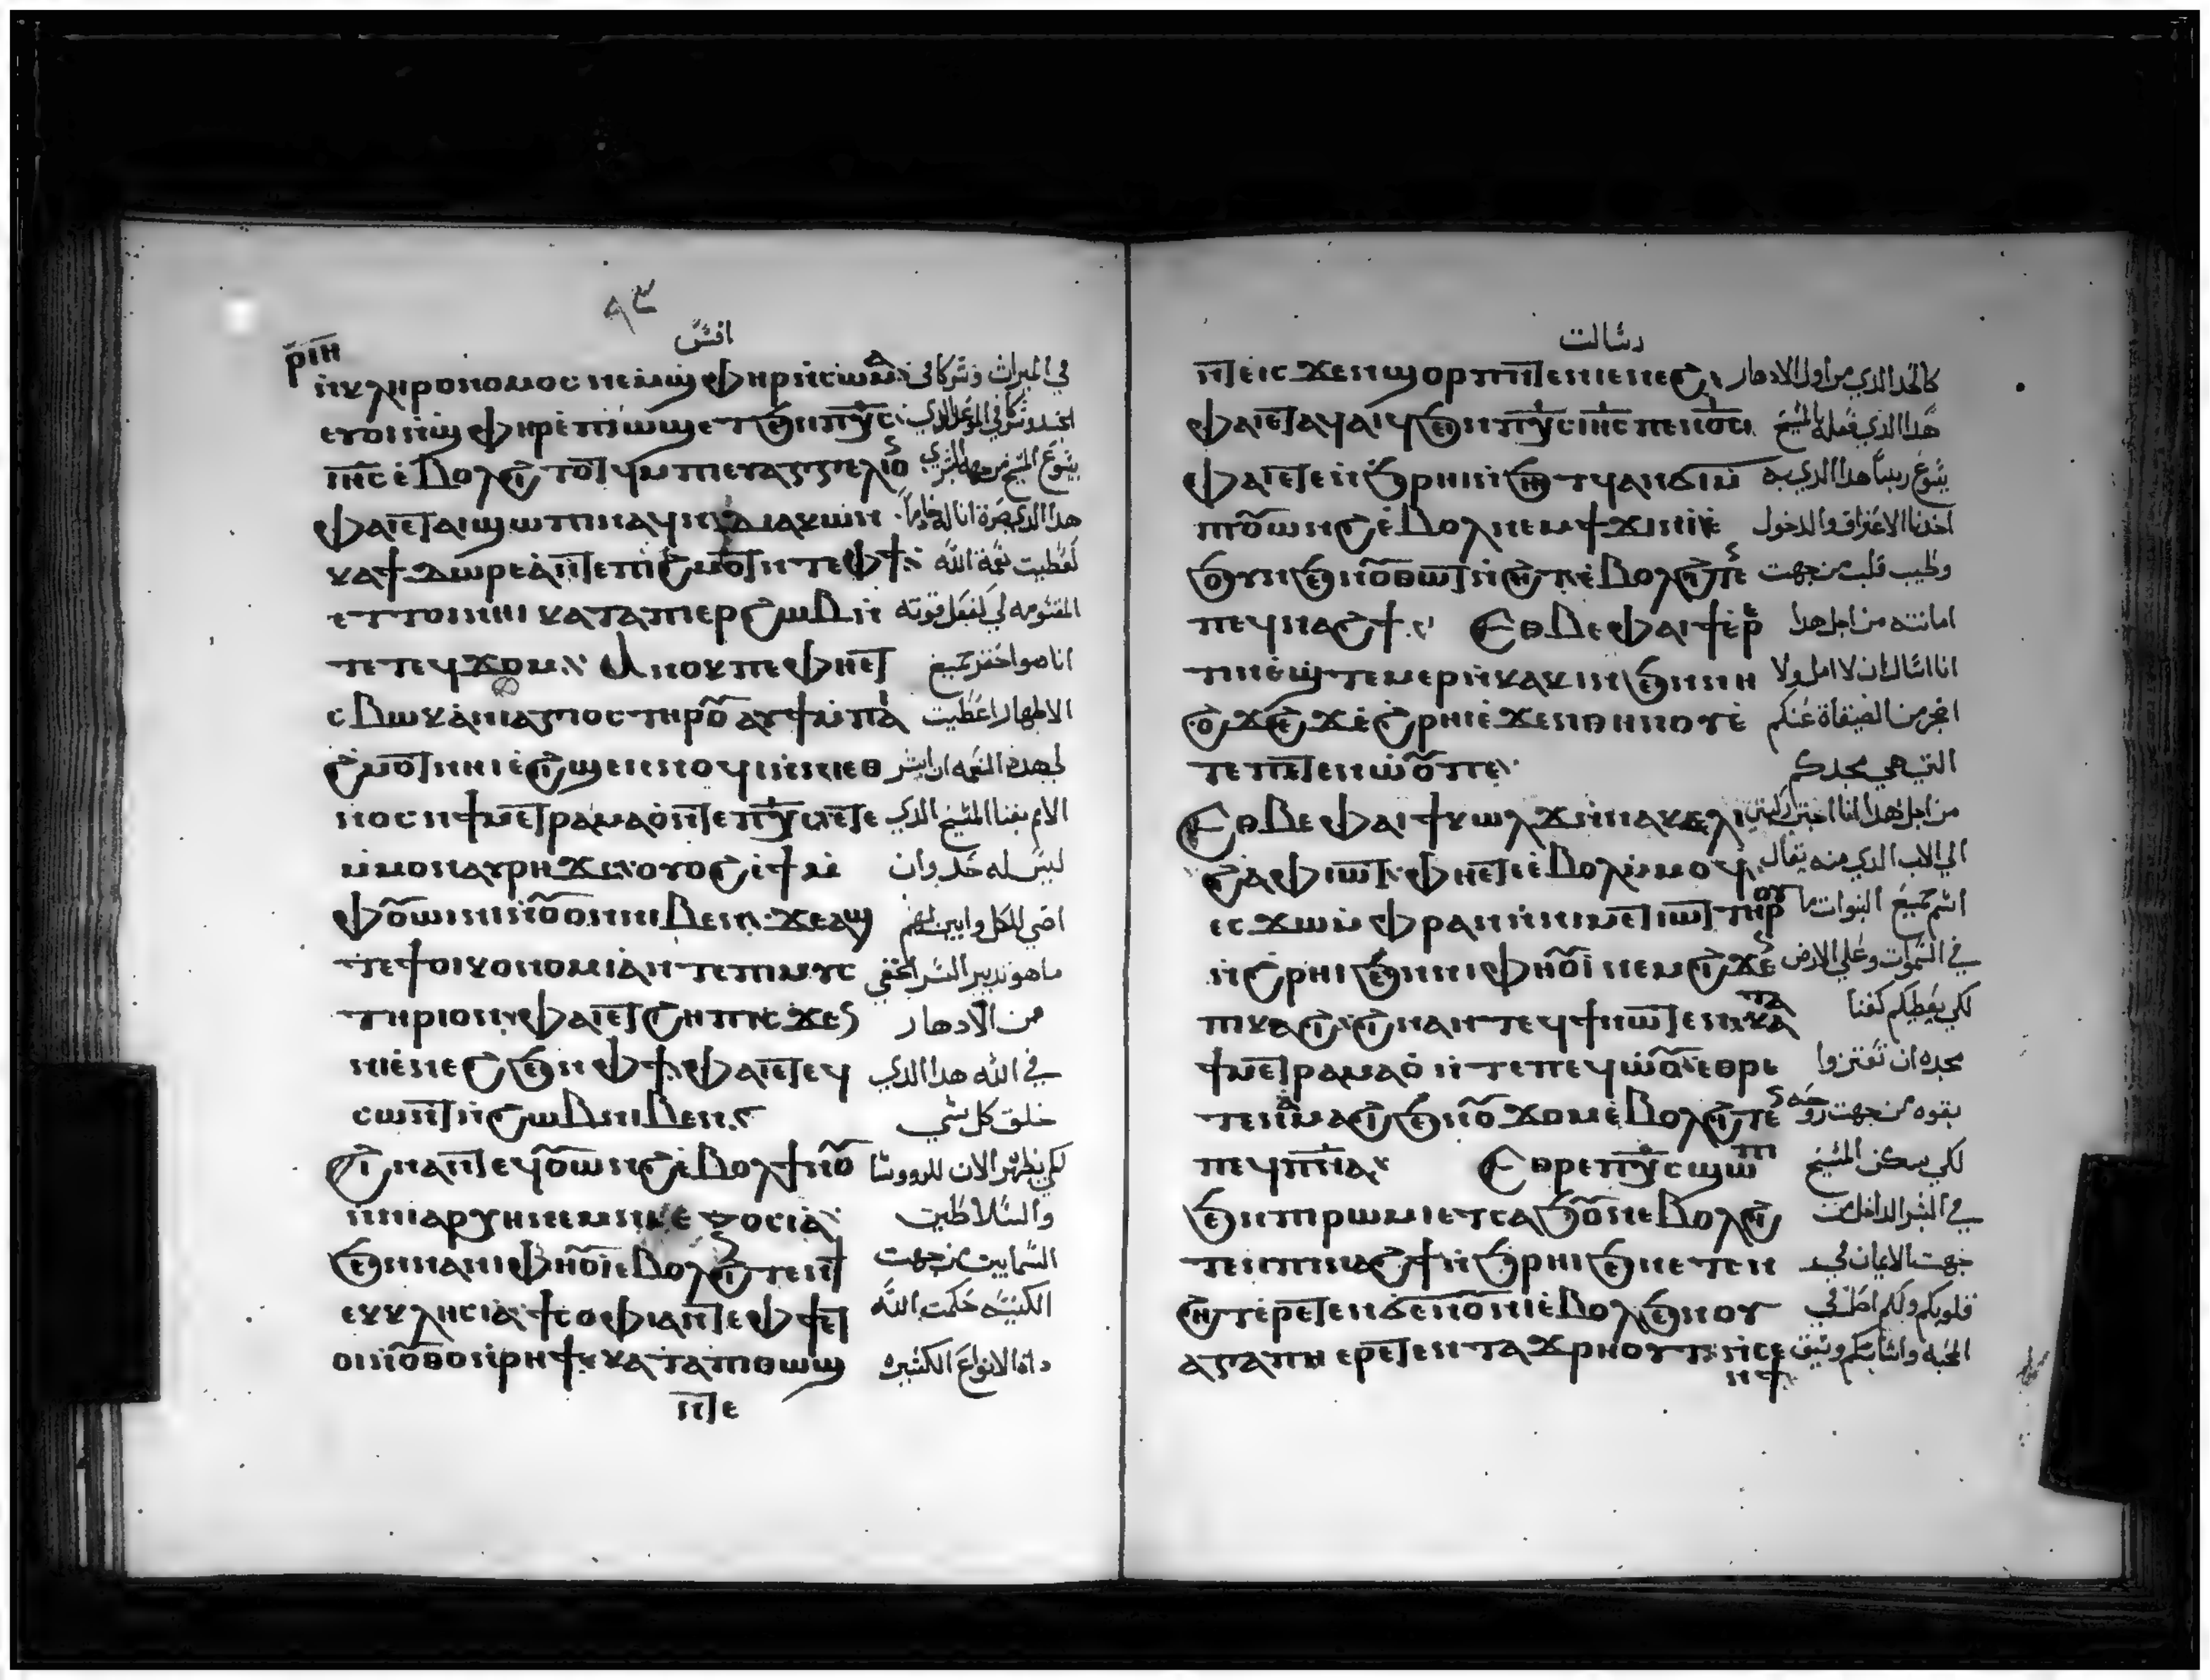 ٩٣
ⲣⲓⲏ
افسس
ⲛ̀ⲕⲗⲏⲣⲟⲛⲟⲙⲟⲥ ⲛⲉⲙ ϣⲫⲏⲣ ⲛ̀ⲥⲱⲙⲁ في الميراث وشركا في
ⲉⲩⲟⲓ ⲛ̀ϣⲫⲏⲣ ⲉ̀ⲡⲓⲱϣ ⲉⲧϧⲉⲛ ⲡⲭ̅ⲥ̅
ⲓⲏ̅ⲥ ⲉ̀ⲃⲟⲗϩⲓⲧⲟⲧϥ ⲙ̀ⲡⲉⲩⲁⲅⲅⲉⲗⲓⲟ يشوع المسيح من جهة البشري
ⲫⲁⲓ ⲉⲧⲁⲓϣⲱⲡⲓ ⲛⲁϥ ⲛ̀ⲇⲓⲁⲕⲱⲛ هدا الدي صرة انا له خادماً
ⲕⲁ ϯⲇⲱⲣⲉⲁ̀ ⲛ̀ⲧⲉ ⲡⲓϩⲙⲟⲧ ⲛ̀ⲧⲉ ⲫϯ كعطيت نعمة الله
ⲉⲧⲧⲟⲓ ⲛⲏⲓ ⲕⲁⲧⲁ ⲡⲉⲣϩⲱⲃ ⲛ̀ المقسومه لي كفعل قوته
ⲧⲉ ⲧⲉϥϫⲟⲙ ⲁⲛⲟⲕ ⲡⲉ ⲫⲏⲉⲧ انا هوا احقر جميع
ⲥⲃⲱⲕ ⲁ̀ⲛⲓⲁⲅⲓⲟⲥ ⲧⲏⲣⲟⲩ ⲁⲩϯ ⲙ̀ⲡⲁⲓ الاطهار اعطيت
ϩⲙⲟⲧ ⲛⲏⲓ ⲉ̀ϩⲓϣⲉⲛⲛⲟⲩϥⲓ ⲛ̀ⲛⲓⲉⲑ لي هده النعمه ان ابشر
ⲛⲟⲥ ⲛ̀ϯⲙⲉⲧⲣⲁⲙⲁⲟ̀ ⲛ̀ⲧⲉ ⲡⲭ̅ⲥ̅ ⲉⲧⲉ الامم بغنا المسيح الدي
ⲙ̀ⲙⲟⲛⲧⲁⲩⲣⲏϫⲥ ⲟⲩⲟϩ ⲉ̀ϯⲙ̀ ليس له حد وان
ⲫⲟⲩⲱⲓⲛⲓ ⲛ̀ⲟⲩⲟⲛ ⲛⲓⲃⲉⲛ ϫⲉ ⲁϣ اضي للكل وابين لهم
ⲧⲉ ϯⲟⲓⲕⲟⲛⲟⲙⲓⲁ̀ ⲛ̀ⲧⲉ ⲡⲓⲙⲩⲥ ما هو تدبير السر المخفي
ⲧⲏⲣⲓⲟⲛ ⲫⲁⲓ ⲉⲧϩⲏⲡ ⲓⲥϫⲉ من الادهار
ⲛⲓⲉⲛⲉϩ ϧⲉⲛ ⲫϯ ⲫⲁⲓ ⲉⲧⲉϥ في الله هدا الدي
ⲥⲱⲛⲧ ⲛ̀ϩⲱⲃ ⲛⲓⲃⲉⲛ خلق كل شي
ϩⲓⲛⲁ ⲛ̀ⲧⲉϥⲟⲩⲱⲛϩ ⲉ̀ⲃⲟⲗ ϯⲛⲟⲩ لكي يظهر الان للرووسا
ⲛ̀ⲛⲓⲁⲣⲭⲏ ⲛⲉⲙ ⲛⲓⲉⲝⲟⲩⲥⲓⲁ̀ والسلاطين
ϧⲉⲛ ⲛⲁ ⲛⲓⲫⲏⲟⲩⲓ̀ ⲉ̀ⲃⲟⲗϩⲓⲧⲉⲛ ϯ السمايين من جهت
ⲉⲕⲕⲗⲏⲥⲓⲁ̀ ϯⲥⲟⲫⲓⲁ ⲛ̀ⲧⲉ ⲫϯ ⲉⲧ الكنيسه حكمت الله
ⲟⲓ ⲛ̀ⲟⲩⲑⲟ ⲛ̀ⲣⲏϯ ⲕⲁⲧⲁ ⲡⲑⲱϣ داة الانواع الكتيره
ⲛ̀ⲧⲉ
رسالت
ⲛ̀ⲧⲉⲓⲥϫⲉⲛ ϣⲟⲣⲡ ⲛ̀ⲧⲉ ⲛⲓⲉⲛⲉϩ كالحد الدي من اول الادهار
ⲫⲁⲓ ⲉⲧⲁϥⲁⲓϥ ϧⲉⲛ ⲡⲭ̅ⲥ̅ ⲓⲏ̅ⲥ ⲡⲉⲛⲟ̅ⲥ̅ هدا الدي فعله بالمسيح
ⲫⲁⲓ ⲉⲧⲉⲛ̀ϧⲣⲏⲓ ⲛ̀ϧⲏⲧϥ ⲁⲛϭⲓ ⲙ̀ يشوع ربنا هدا الدي به
ⲡⲟⲩⲱⲛϩ ⲉ̀ⲃⲟⲗ ⲛⲉⲙ ⲡϫⲓⲛⲓ̀ ⲉ̀ اخدنا الاعتراف والدخول
ϧⲟⲩⲛ ϧⲉⲛ ⲟⲩⲑⲱⲧ ⲛ̀ϩⲏⲧ ⲉ̀ⲃⲟⲗϩⲓⲧⲉⲛ وطيب قلب من جهت
ⲡⲉϥⲛⲁϩϯ ⲉⲑⲃⲉ ⲫⲁⲓ ϯⲉⲣⲉ̀ امانته من اجل هدا
ⲧⲓⲛ ⲉ̀ϣⲧⲉⲙⲉⲣⲛ̀ⲕⲁⲕⲓⲛ ϧⲉⲛ ⲛⲓ انا اسال ان لا امل ولا
ϩⲟϫϩⲉϫ ⲉ̀ϩⲣⲏⲓ ⲉ̀ϫⲉⲛ ⲑⲏⲛⲟⲩ ⲉ̀ اضجر من الضيقاة عنكم
ⲧⲉ ⲡⲉⲧⲉⲛⲱ̀ⲟⲩ ⲡⲉ التي هي مجدكم
ⲉⲑⲃⲉ ⲫⲁⲓ ϯⲕⲱⲗϫ ⲛ̀ⲛⲁⲕⲉⲗⲓ من اجل هدا انا احني ركبتي
ϩⲁ ⲫⲓⲱⲧ ⲫⲏⲉⲧⲉ ⲉ̀ⲃⲟⲗ ⲙ̀ⲙⲟϥ الي الاب الدي منه يقال
ⲥⲉϫⲱ ⲙ̀ⲫⲣⲁⲛ ⲛ̀ⲛⲓⲙⲉⲧⲓⲱⲧ ⲧⲏⲣⲟⲩ اسم جميع البنوات ما
ⲛ̀ϩⲣⲏⲓ ϧⲉⲛ ⲛⲓⲫⲏⲟⲩⲓ̀ ⲛⲉⲙ ϩⲓϫⲉⲛ في السموات وعلي الارض
ⲡⲕⲁϩⲓ ϩⲓⲛⲁ ⲛ̀ⲧⲉϥϯ ⲛⲱⲧⲉⲛ ⲕⲁⲧⲁ لكي يعطيكم كغنا
ϯⲙⲉⲧⲣⲁⲙⲁⲟ̀ ⲛ̀ⲧⲉ ⲡⲉϥⲱ̀ⲟⲩ ⲉⲑⲣⲉ مجده ان تعتزوا
ⲧⲉⲛⲁ̀ⲙⲁϩⲓ ϧⲉⲛ ⲟⲩϫⲟⲙ ⲉ̀ⲃⲟⲗϩⲓⲧⲉⲛ بقوه من جهت روحه
ⲡⲉϥⲡ̅ⲛ̅ⲁ ⲉⲑⲣⲉ ⲡⲭ̅ⲥ̅ ϣⲱⲡⲓ لكي يسكن المسيح
ϧⲉⲛ ⲡⲓⲣⲱⲙⲓ ⲉⲧⲥⲁϧⲟⲩⲛ ⲉ̀ⲃⲟⲗϩⲓ في البشر الداخل من
ⲧⲉⲛ ⲡⲓⲛⲁϩϯ ⲛ̀ϧⲣⲏⲓ ϧⲉⲛ ⲛⲉⲧⲉⲛ جهت الايمان في
ϩⲏⲧ ⲉ̀ⲣⲉⲧⲉⲛϭⲉⲛⲟⲩⲛⲓ ⲉ̀ⲃⲟⲗ ϧⲉⲛ ⲟⲩ قلوبكم ولكم اصل في
ⲁⲅⲁⲡⲏ ⲉⲣⲉⲧⲉⲛⲧⲁϫⲣⲏⲟⲩⲧ ⲛ̀ⲥⲉ
ⲛϯ